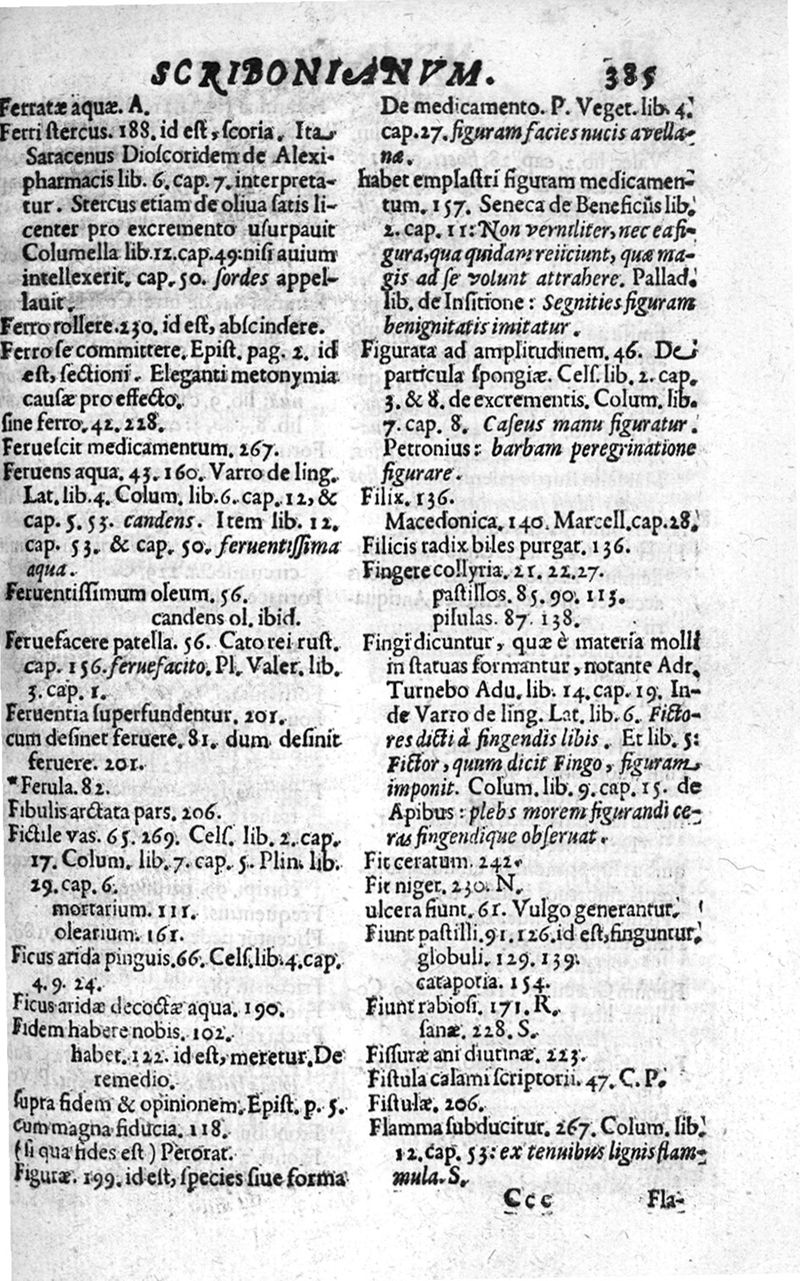 SCRIBONIANVM. 385
Ferratæ aquæ. A.
Ferri stercus. 188. id est, scoria. Ita
Saracenus Dioscoridem de Alexi-
pharmacis lib. 6. cap. 7. interpreta-
tur. Stercus etiam de oliua satis li-
center pro excremento usurpauit
Columella lib. 12. cap. 49: nisi auium
intellexerit. cap. 50. sordes appel-
lauit.
Ferro tollere. 230. id est, abscindere.
Ferro se committere. Epist. pag. 2. id
est, sectioni. Eleganti metonymia
causæ pro effecto.
sine ferro. 42. 228.
Feruescit medicamentum. 267.
Feruens aqua. 43. 160. Varro de ling.
Lat. lib. 4. Colum. lib. 6. cap. 12, &
cap. 5. 53. candens. Item lib. 12.
cap. 53. & cap. 50. feruentissima
aqua.
Feruentissimum oleum. 56.
candens ol. ibid.
Feruefacere patella. 56. Cato rei rust.
cap. 156. feruefacito. Pl. Valer. lib.
3. cap. 1.
Feruentia superfundentur. 201.
cum desinet feruere. 81. dum desinit
feruere. 201.
*Ferula. 82.
Fibulis arctata pars. 206.
Fictile vas. 65. 269. Cels. lib. 2. cap.
17. Colum. lib. 7. cap. 5. Plin. lib.
29. cap. 6.
mortarium. 111.
olearium. 161.
Ficus arida pinguis. 66. Cels. lib. 4. cap.
4. 9. 24.
Ficus aridæ decoctæ aqua. 190.
Fidem habere nobis. 102.
habet. 122. id est, meretur. De
remedio.
supra fidem & opinionem. Epist. p. 5.
cum magna fiducia. 118.
(si qua fides est) Perorat.
Figuræ. 199. id est, species siue forma
De medicamento. P. Veget. lib. 4.
cap. 27. figuram facies nucis avella-
næ.
habet emplastri figuram medicamen-
tum. 157. Seneca de Beneficiis lib.
2. cap. 11: Non verniliter, nec ea fi-
gura, qua quidam reiiciunt, quæ ma-
gis ad se volunt attrahere. Pallad.
lib. de Insitione: Segnities figuram
benignitatis imitatur.
Figurata ad amplitudinem. 46. De
particula spongiæ. Cels. lib. 2. cap.
3. & 8. de excrementis. Colum. lib.
7. cap. 8. Caseus manu figuratur.
Petronius: barbam peregrinatione
figurare.
Filix. 136.
Macedonica. 140. Marcell. cap. 28.
Filicis radix biles purgat. 136.
Fingere collyria. 21. 22. 27.
pastillos. 85. 90. 113.
pilulas. 87. 138.
Fingi dicuntur, quæ è materia molli
in statuas formantur, notante Adr.
Turnebo Adu. lib. 14. cap. 19. In-
de Varro de ling. Lat. lib. 6. Ficto-
res dicti à fingendis libis. Et lib. 5:
Fictor, quum dicit Fingo, figuram
imponit. Colum. lib. 9. cap. 15. de
Apibus: plebs morem figurandi ce-
ras fingendique obseruat.
Fit ceratum. 242.
Fit niger. 230. N.
ulcera fiunt. 61. Vulgo generantur.
Fiunt pastilli. 91. 126. id est, finguntur.
globuli. 129. 139.
catapotia. 154.
Fiunt rabiosi. 171. R.
sanæ. 228. S.
Fissuræ ani diutinæ. 223.
Fistula calami scriptorii. 47. C. P.
Fistulæ. 206.
Flamma subducitur. 267. Colum. lib.
12. cap. 53: ex tenuibus lignis flam-
mula. S.
Ccc Fla-